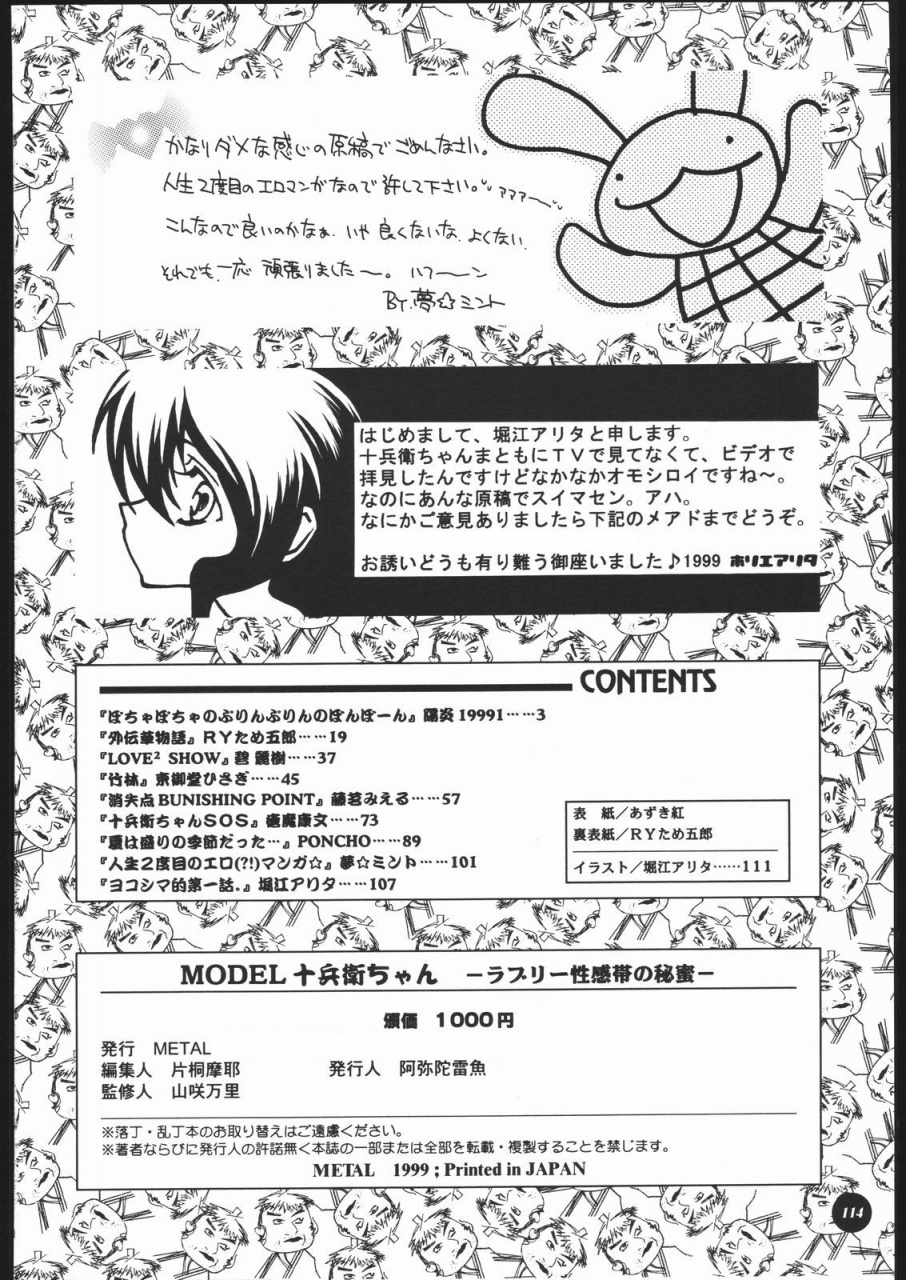 かなりダメな感じの原稿でごめんなさい。
人生2度目のエロマンガなので許して下さい。アアアー
こんなので良いのかなぁ いや 良くないな.よくない.
それでも一応 頑張りましたー。ハフーン
By.夢☆ミント
はじめまして、堀江アリタと申します。
十兵衛ちゃんまともにTVで見てなくて、ビデオで
拝見したんですけどなかなかオモシロイですね～。
なのにあんな原稿でスイマセン。アハ。
なにかご意見ありましたら下記のメアドまでどうぞ。
お誘いどうも有り難う御座いました♪1999 ホリエアリタ
CONTENTS
『ぽちゃぽちゃのぷりんぷりんのぽんぽーん』陽炎19991……3
『外伝華物語』RYため五郎……19
『LOVE² SHOW』碧 麗樹……37
『竹林』東御堂ひさぎ……45
『消失点BUNISHING POINT』藤茗みえる……57
『十兵衛ちゃんSOS』極魔康文……73
『夏は盛りの季節だった…』PONCHO……89
『人生2度目のエロ(?!)マンガ☆』夢☆ミント……101
『ヨコシマ的第一話.』堀江アリタ……107
表 紙／あずき紅
裏表紙／RYため五郎
イラスト／堀江アリタ……111
MODEL十兵衛ちゃん －ラブリー性感帯の秘蜜－
頒価 1000円
発行 METAL
編集人 片桐摩耶 発行人 阿弥陀雷魚
監修人 山咲万里
※落丁・乱丁本のお取り替えはご遠慮ください。
※著者ならびに発行人の許諾無く本誌の一部または全部を転載・複製することを禁じます。
METAL 1999 ; Printed in JAPAN
114